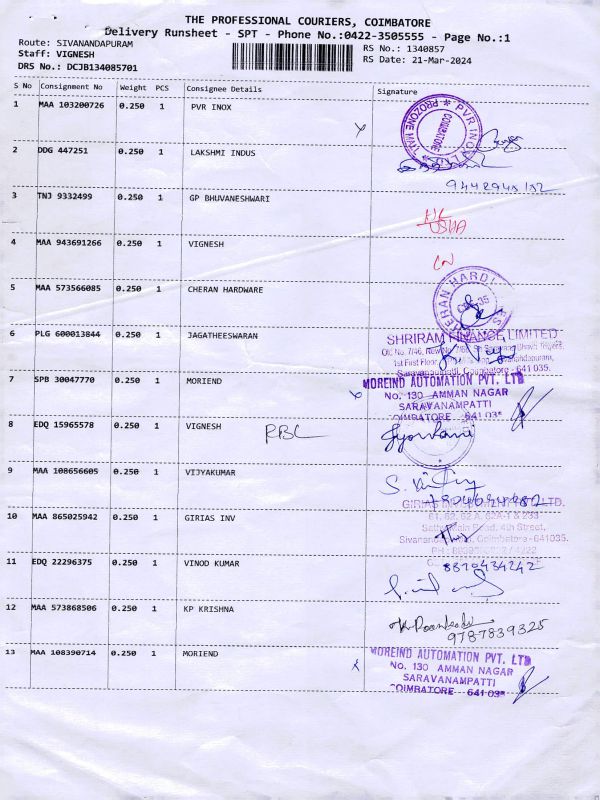 THE PROFESSIONAL COURIERS, COIMBATORE
Delivery Runsheet - SPT - Phone No.:0422-3505555 - Page No.:1
Route: SIVANANDAPURAM
RS No.: 1340857
Staff: VIGNESH
RS Date: 21-Mar-2024
DRS No.: DCJB134085701
S No Consignment No Weight PCS Consignee Details Signature
1 MAA 103200726 0.250 1 PVR INOX
PROZONE MALL * PVR INOX
COIMBATORE
2 DDG 447251 0.250 1 LAKSHMI INDUS
3 TNJ 9332499 0.250 1 GP BHUVANESHWARI
USHA
4 MAA 943691266 0.250 1 VIGNESH
5 MAA 573566085 0.250 1 CHERAN HARDWARE
CHERAN HARD
6 PLG 600013844 0.250 1 JAGATHEESWARAN
SHRIRAM FINANCE LIMITED
1st First Floor
Coimbatore - 641 035.
7 SPB 30047770 0.250 1 MORIEND
MOREIND AUTOMATION PVT. LTD
No. 130 AMMAN NAGAR
SARAVANAMPATTI
COIMBATORE 641 03
8 EDQ 15965578 0.250 1 VIGNESH RBL
9 MAA 108656605 0.250 1 VIJYAKUMAR
10 MAA 865025942 0.250 1 GIRIAS INV
GIRIAS LTD.
Road, 4th Street,
Coimbatore-641035.
11 EDQ 22296375 0.250 1 VINOD KUMAR
8870434242
12 MAA 573868506 0.250 1 KP KRISHNA
9787839325
13 MAA 108390714 0.250 1 MORIEND
MOREIND AUTOMATION PVT. LTD
No. 130 AMMAN NAGAR
SARAVANAMPATTI
COIMBATORE 641 03